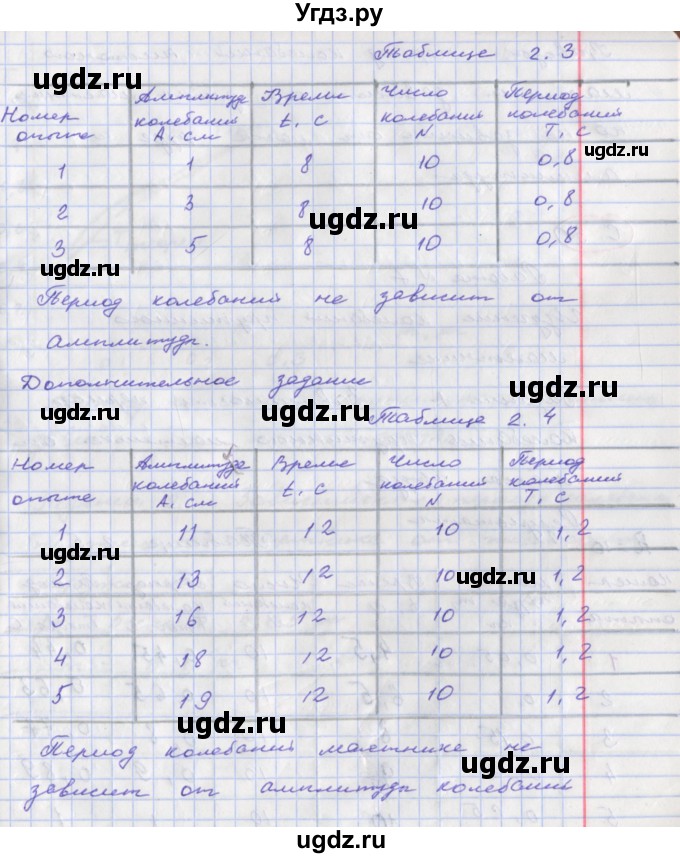 Угдз.ру
ugdz.ru
Таблице 2.3
Номер опыте Амплитуде колебаний А, см Време t, с Число колебаний N Период колебаний Т, с
1 1 8 10 0,8
ugdz.ru
2 3 8 10 0,8
ugdz.ru
ugdz.ru
3 5 8 10 0,8
ugdz.ru
Период колебаний не зависит от
амплитуды.
Дополнительное задание
ugdz.ru ugdz.ru
Таблице 2.4
Номер опыте Амплитуде колебаний А, см Време t, с Число колебаний N Период колебаний Т, с
1 11 12 10 1,2
ugdz.ru
2 13 12 10 1,2
ugdz.ru
3 16 12 10 1,2
4 18 12 10 1,2
5 19 12 10 1,2
ugdz.ru
Период колебаний маятнике не
ugdz.ru
зависит от амплитуды колебаний
ugdz.ru
ugdz.ru